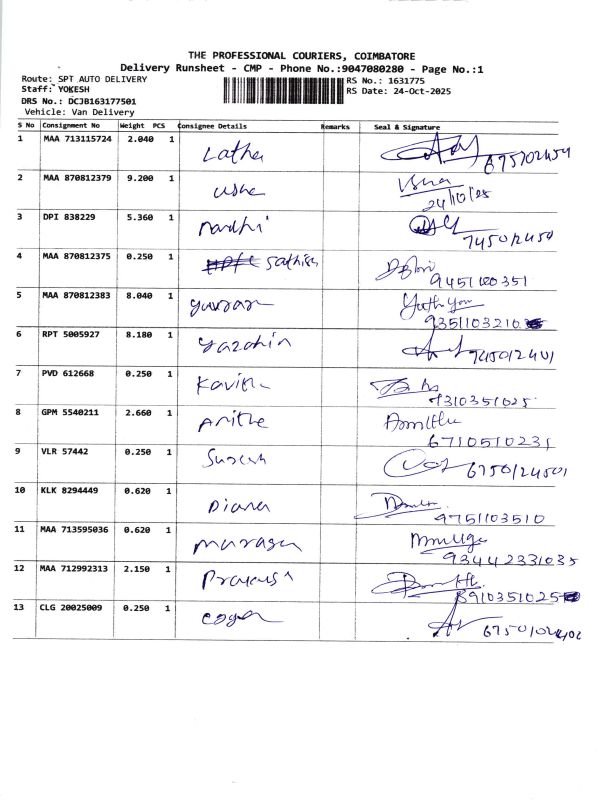 THE PROFESSIONAL COURIERS, COIMBATORE
Delivery Runsheet - CMP - Phone No.:9047080280 - Page No.:1
Route: SPT AUTO DELIVERY
RS No.: 1631775
Staff: YOKESH
RS Date: 24-Oct-2025
DRS No.: DCJB163177501
Vehicle: Van Delivery
S No Consignment No Weight PCS Consignee Details Remarks Seal & Signature
1 MAA 713115724 2.040 1 Latha
2 MAA 870812379 9.200 1 usha
24/10/25
3 DPI 838229 5.360 1 nandhi
745012450
4 MAA 870812375 0.250 1 Sathish
5 MAA 870812383 8.040 1
6 RPT 5005927 8.180 1 yazahin
7 PVD 612668 0.250 1 Kavitha
9310351025
8 GPM 5540211 2.660 1 Anitha
6710510231
9 VLR 57442 0.250 1 Suresh
10 KLK 8294449 0.620 1 Diana
9751103510
11 MAA 713595036 0.620 1 murasu
93442331035
12 MAA 712992313 2.150 1 Prakash
8910351025
13 CLG 20025009 0.250 1